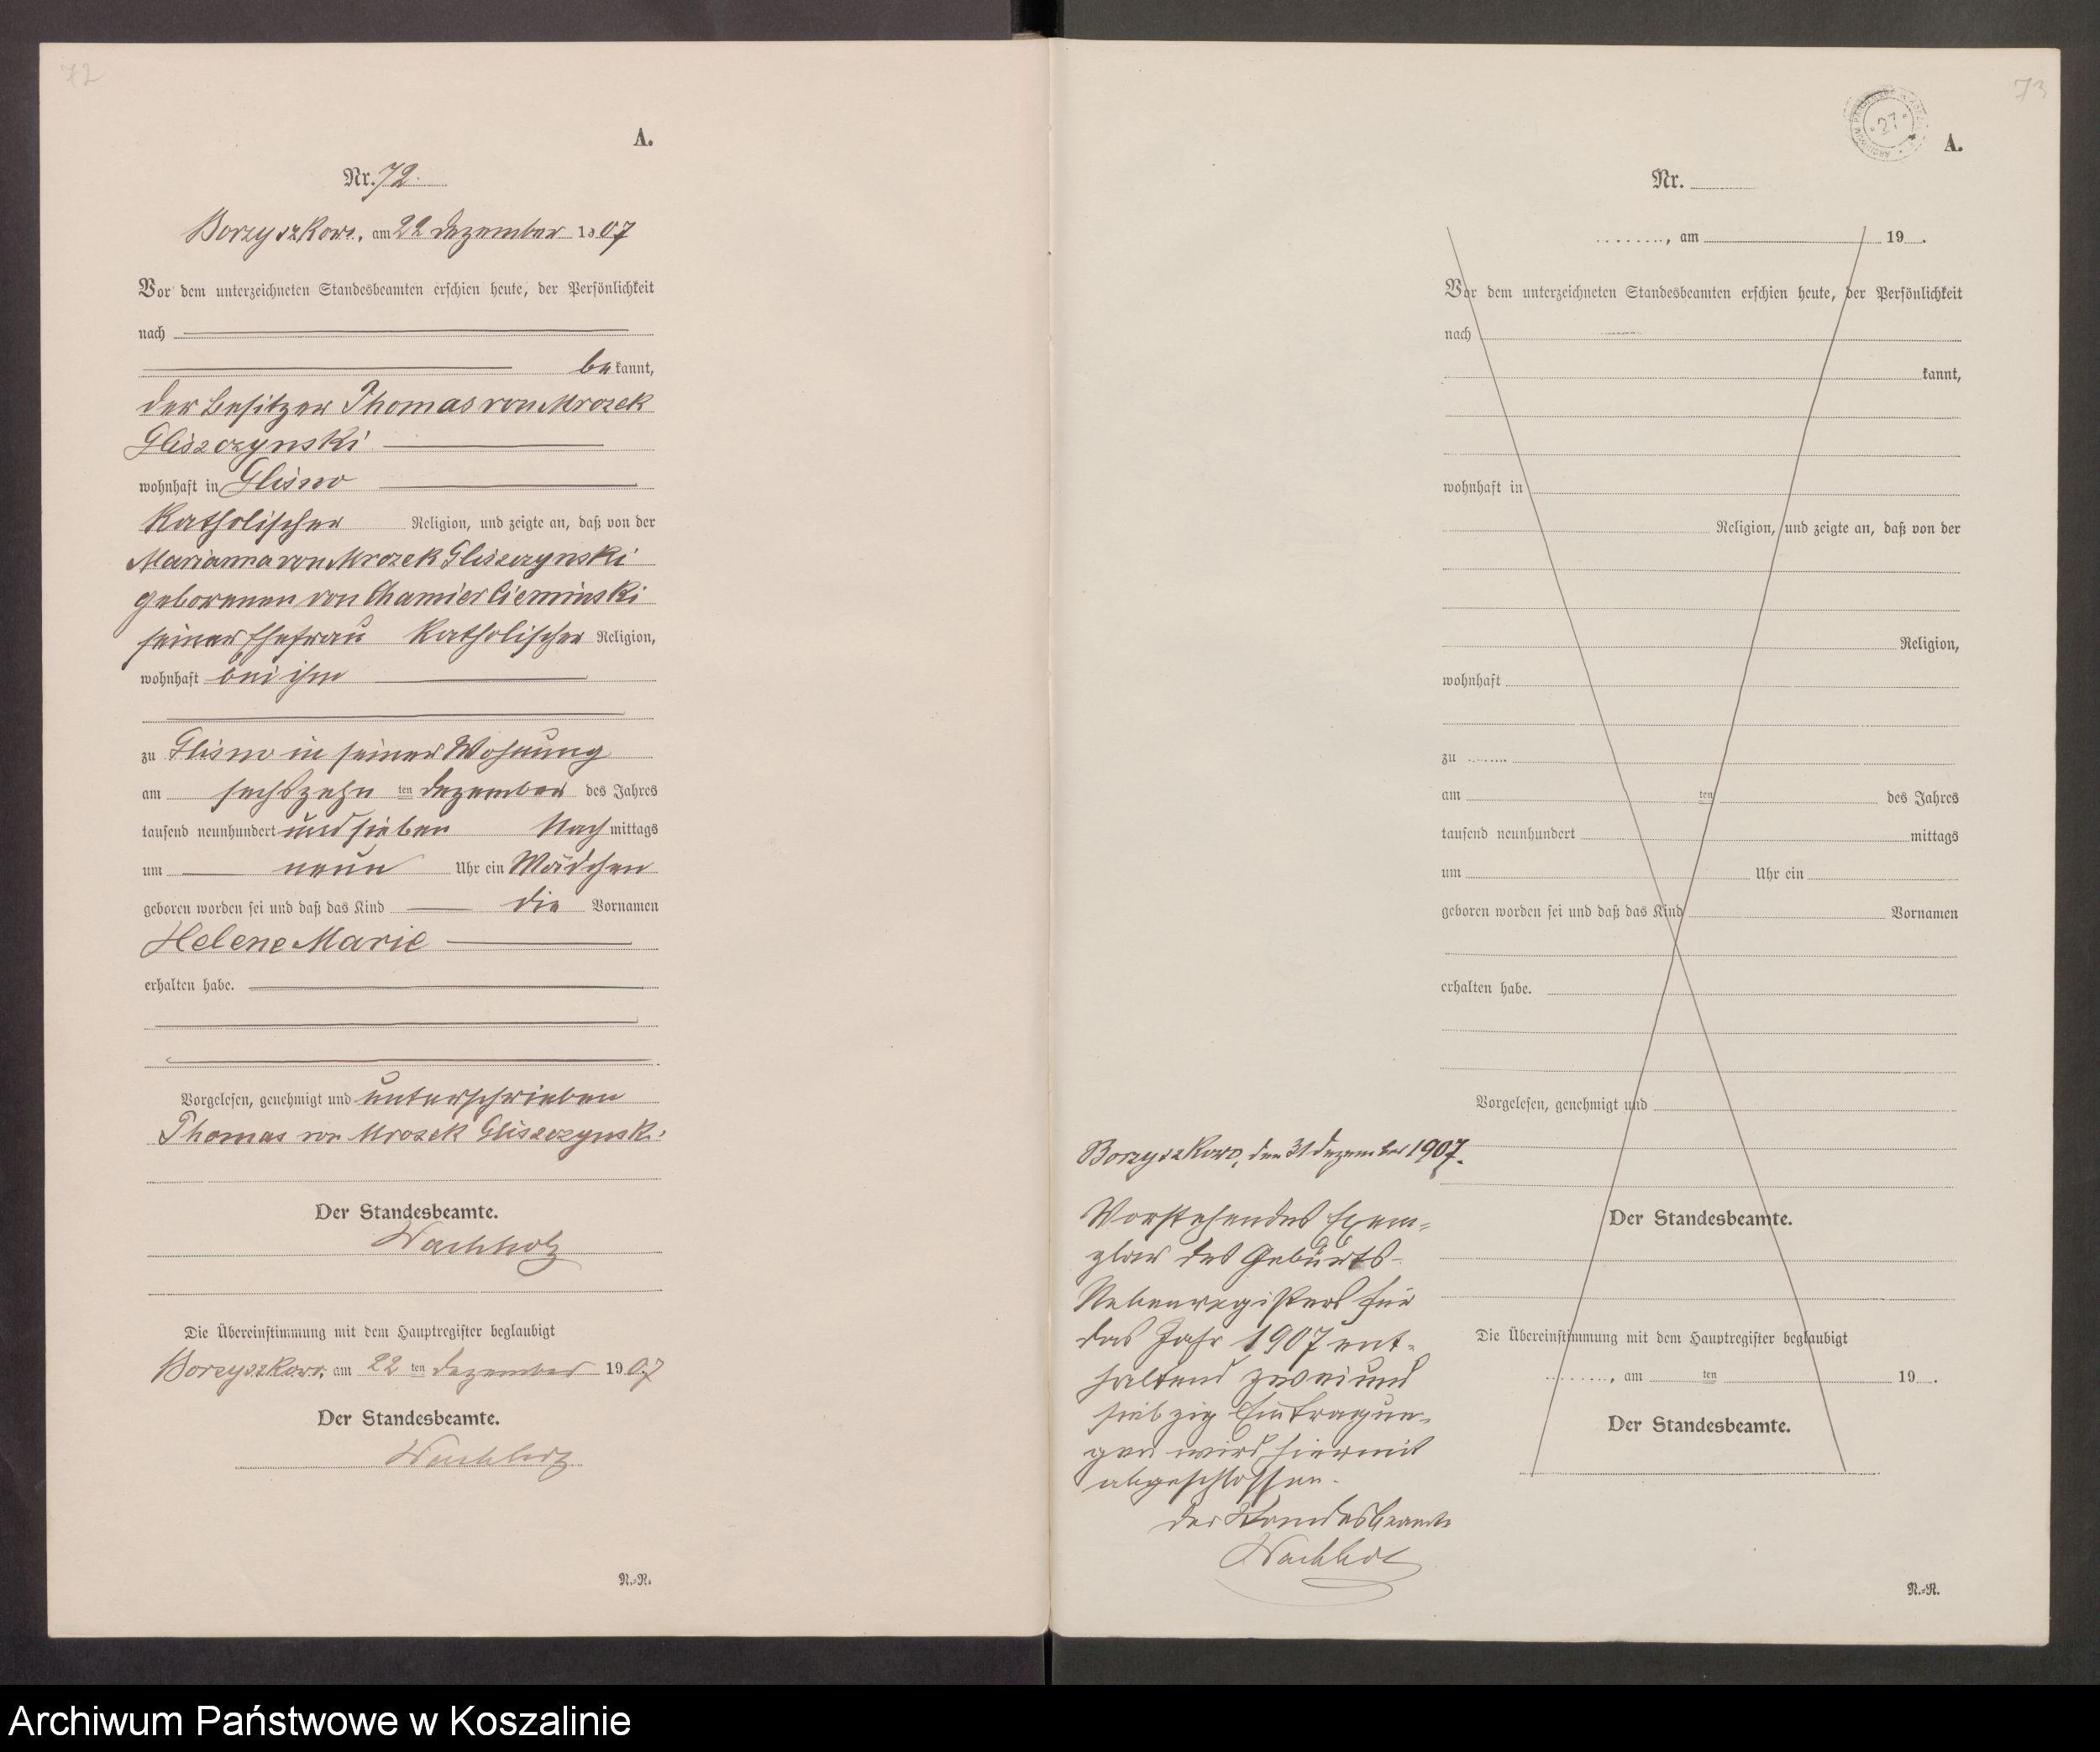 72
A.
Nr. 72.
Borzyszkowo, am 22 Dezember 1907
Vor dem unterzeichneten Standesbeamten erschien heute, der Persönlichkeit
nach
bekannt,
der Besitzer Thomas von Mrozek
Gliszczynski
wohnhaft in Glisno
katholischer Religion, und zeigte an, daß von der
Marianna von Mrozek Gliszczynski
geborenen von Chamier Cieminski
seiner Ehefrau katholischer Religion,
wohnhaft bei ihm
zu Glisno in seiner Wohnung
am sechszehn ten Dezember des Jahres
tausend neunhundert und sieben Nachmittags
um neun Uhr ein Mädchen
geboren worden sei und daß das Kind die Vornamen
Helene Marie
erhalten habe.
Vorgelesen, genehmigt und unterschrieben
Thomas von Mrozek Gliszczynski
Der Standesbeamte.
Wachholz
Die Übereinstimmung mit dem Hauptregister beglaubigt
Borzyszkowo, am 22 ten Dezember 1907
Der Standesbeamte.
Wachholz
N.=R.
73
27
A.
Nr.
, am 19 .
Vor dem unterzeichneten Standesbeamten erschien heute, der Persönlichkeit
nach
kannt,
wohnhaft in
Religion, und zeigte an, daß von der
Religion,
wohnhaft
zu
am ten des Jahres
tausend neunhundert mittags
um Uhr ein
geboren worden sei und daß das Kind Vornamen
erhalten habe.
Vorgelesen, genehmigt und
Der Standesbeamte.
Die Übereinstimmung mit dem Hauptregister beglaubigt
, am ten 19 .
Der Standesbeamte.
N.=R.
Borzyszkowo, den 31 Dezember 1907.
Vorstehendes Exem=
plar des Geburts-
Nebenregisters für
das Jahr 1907 ent-
haltend zweiund
siebzig Eintragun-
gen wird hiermit
abgeschlossen.
Der Standesbeamte
Wachholz
Archiwum Państwowe w Koszalinie